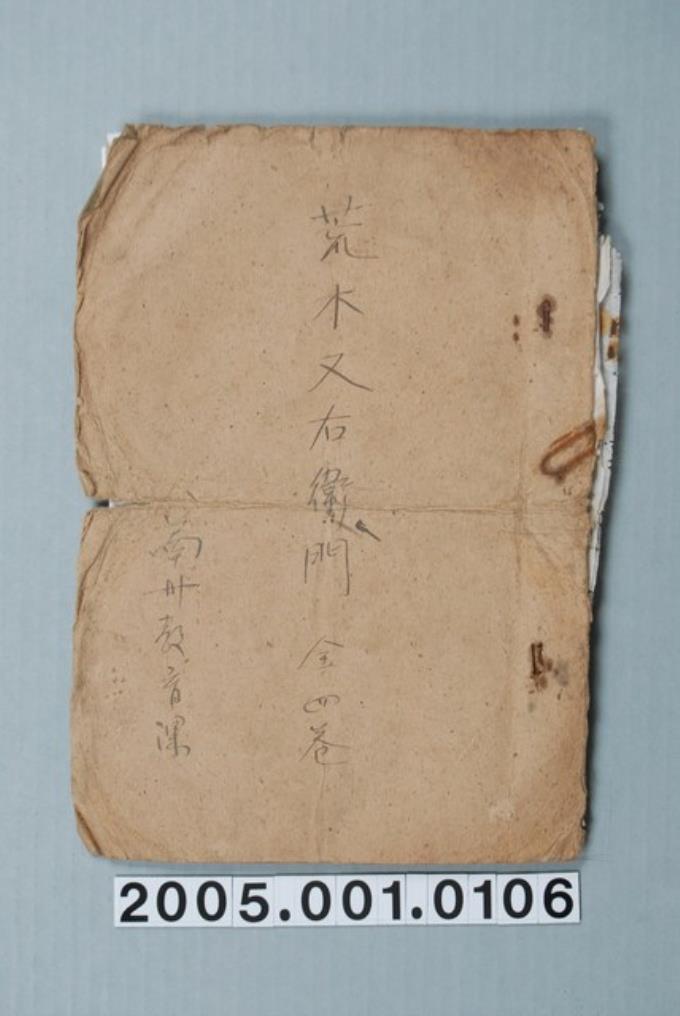 荒木又右衛門 全四巻
台南州教育課
2005.001.0106